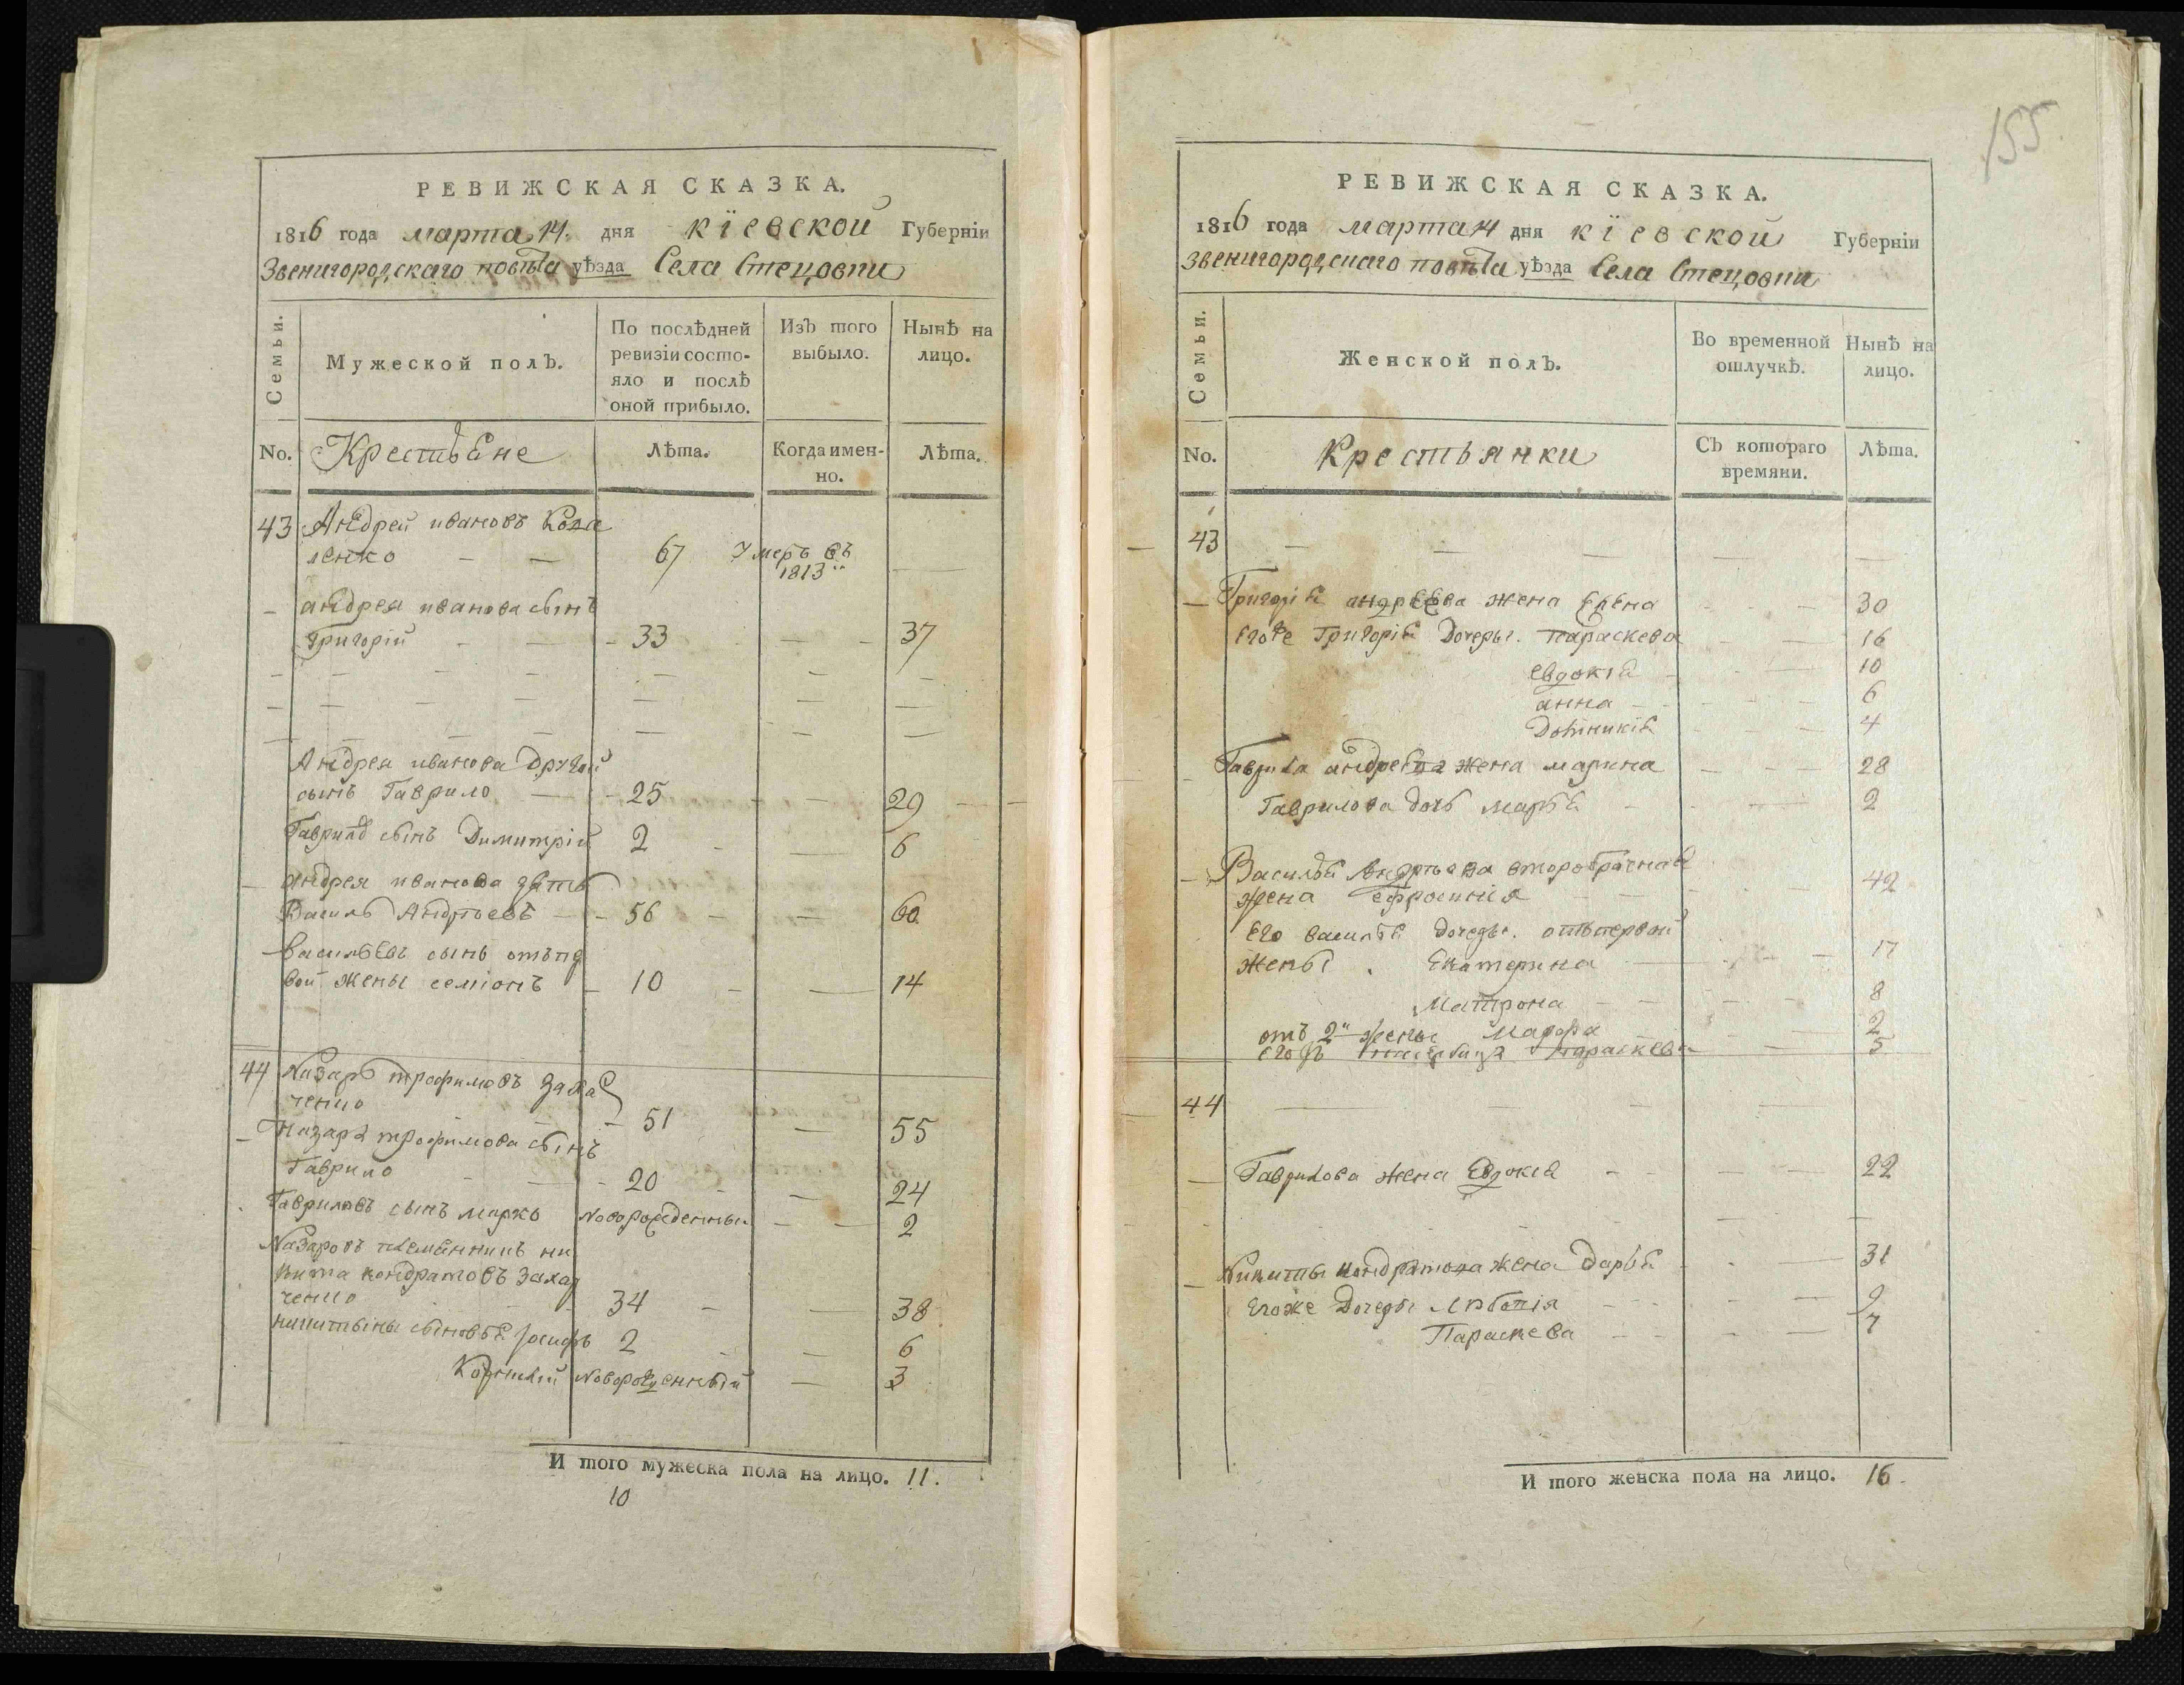 РЕВИЖСКАЯ СКАЗКА.
1816 года марта 14. дня кїевской Губерніи
Звенигородскаго повѣта уѣзда Села Стецовки
Семьи.
Мужеской полЪ.
По послѣдней ревизіи состояло и послѣ оной прибыло.
ИзЪ того выбыло.
Нынѣ на лицо.
No.
Крестьяне
Лѣта.
Когда именно.
Лѣта.
43 Андрей ивановъ Кова
ленко — — 67 Умеръ въ 1813 —
— андрея иванова сынъ
Григорій - — - 33 — - 37
Андрея иванова Другой
сынъ Гаврило — - 25 — 29
Гавриловъ сынъ Димитрій 2 - — 6
— андрея иванова зять
Василь Андрѣевъ — - 56 - — 60
Васильевъ сынъ отъ пер
вой жены семіонъ — 10 - — 14
44 Назаръ трофимовъ Заха
ченко - 51 — 55
— Назара трофимова сынъ
Гаврило - — - 20 - — 24
Гавриловъ сынъ марко Новорожденный - — 2
Назаровъ племянникъ ни
кита кондратовъ Захар
ченко 34 - — 38
никитины сыновья Іосифъ 2 — 6
Корнилій Новорожденный — 3
И того мужеска пола на лицо. 11.
10
155
РЕВИЖСКАЯ СКАЗКА.
1816 года марта 14 дня кїевской Губерніи
Звенигородскаго повѣта уѣзда Села Стецовки
Семьи.
Женской полЪ.
Во временной отлучкѣ.
Нынѣ на лицо.
No.
Крестьянки
СЪ котораго времяни.
Лѣта.
43 — — — — —
— Григорія андреева жена Елена - - — 30
Егоже Григорія Дочеры. параскева — — 16
евдокія - - — 10
анна - - — 6
Домникія - — 4
— Гаврила андреева жена марина — — 28
Гаврилова дочь марья - — 2
— Василья Андрѣева второбрачная
жена ефросинія — - — 42
Его василья дочеры. отъ первой
жены. Екатерина — - — 17
Матрона — — - 8
отъ 2й жены Мавра — 2
Егожъ параскева — 5
44 — — — —
— Гаврилова жена Евдокія - - — — 22
— Никиты кондратова жена Дарья - — 31
Егоже Дочеры — 9
Параскева — — 7
И того женска пола на лицо. 16.